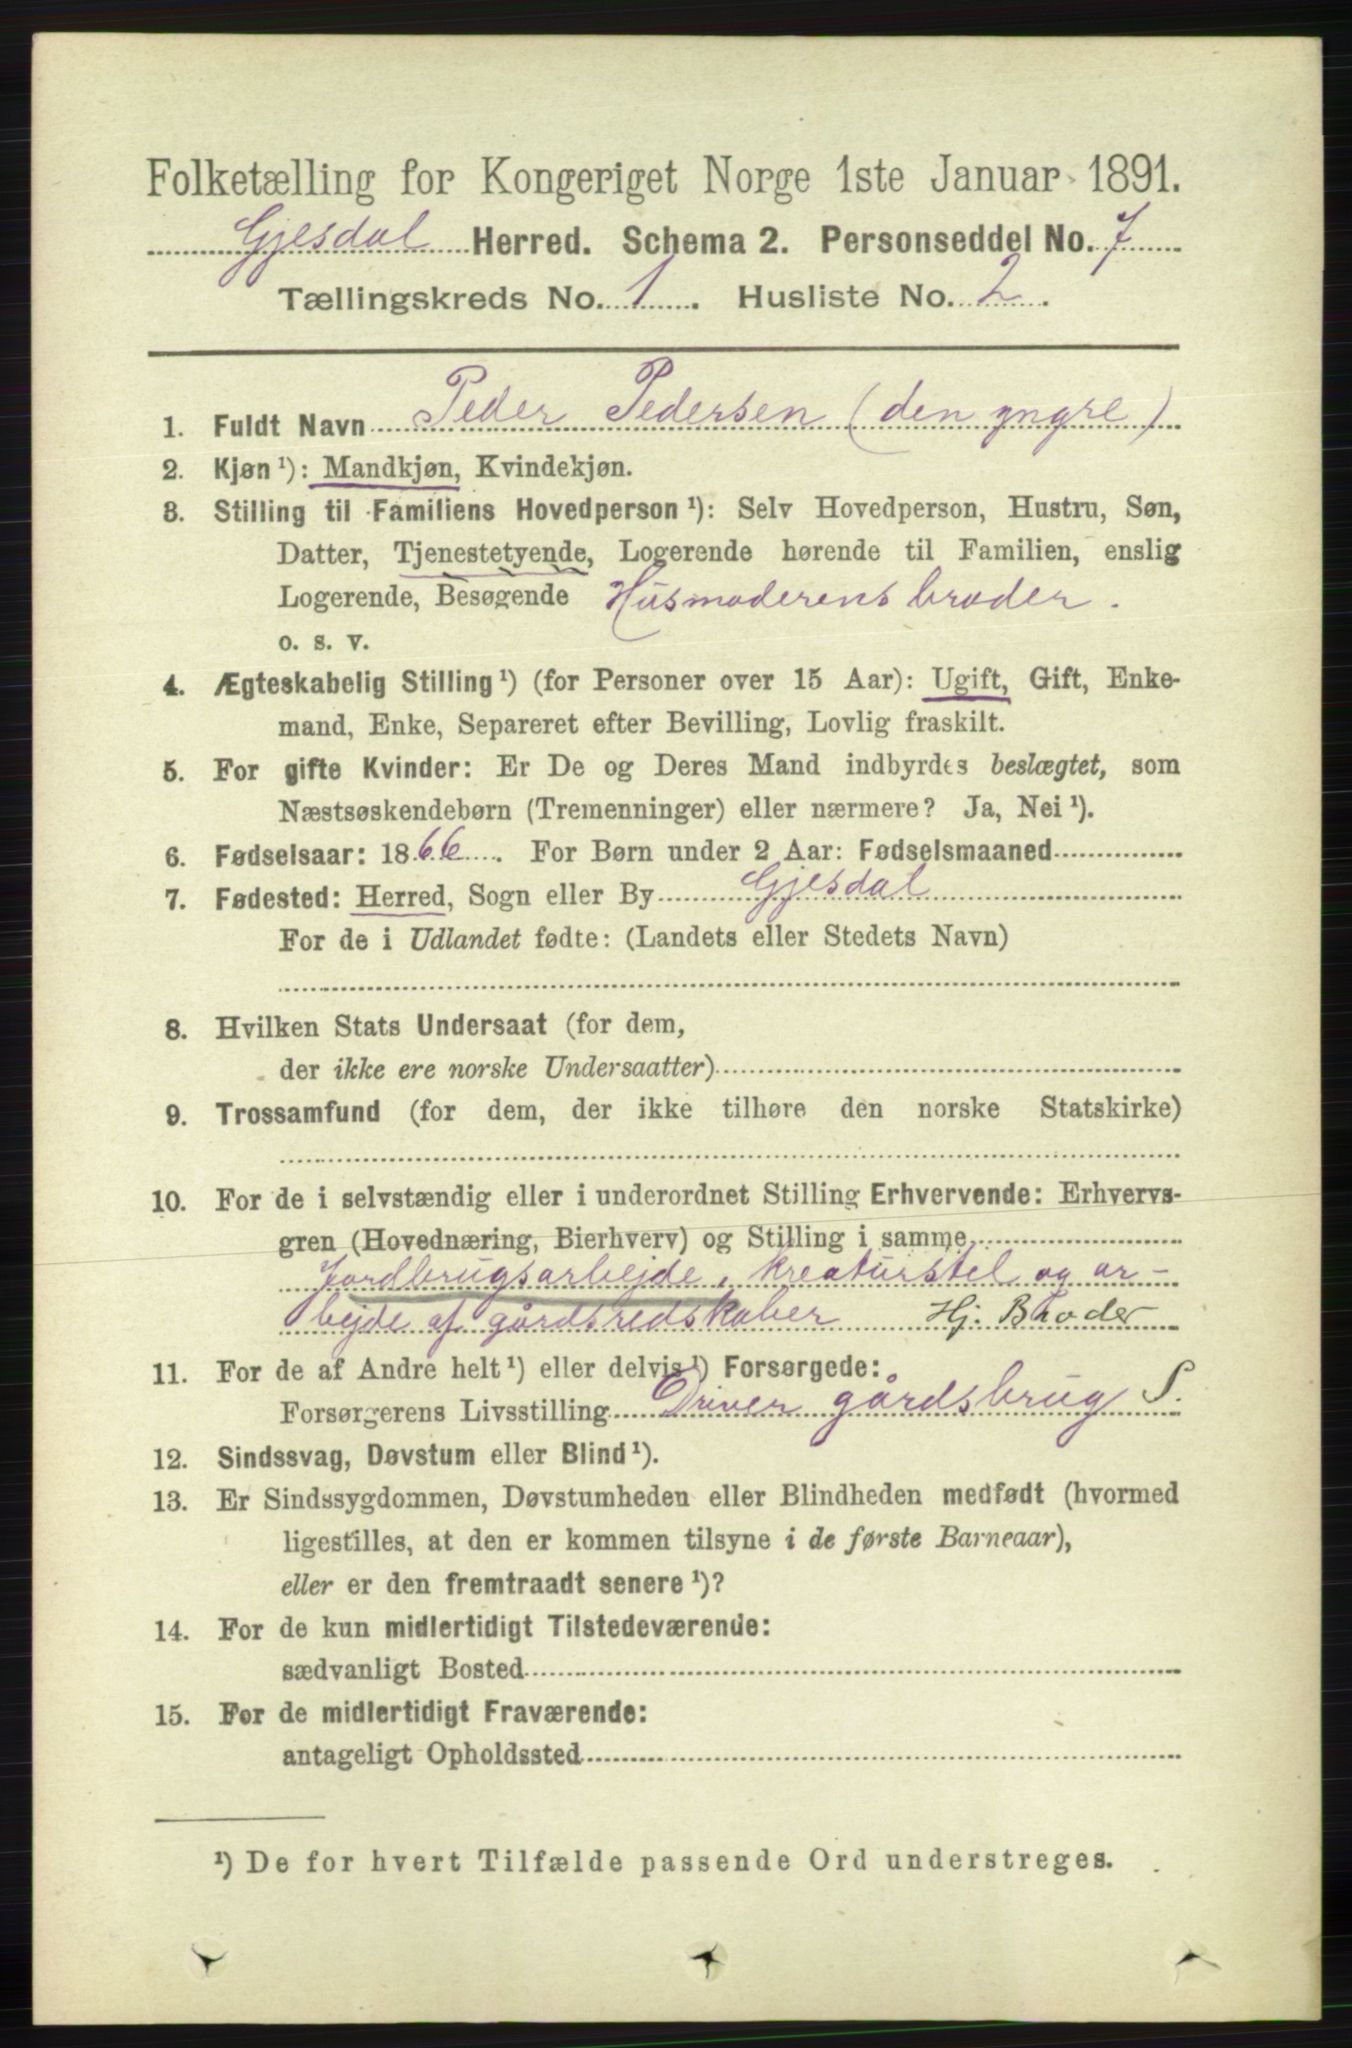 Folketælling for Kongeriget Norge 1ste Januar 1891.
Gjesdal Herred. Schema 2. Personseddel No. 7
Tællingskreds No. 1. Husliste No. 2.
1. Fuldt Navn Peder Pedersen (den yngre)
2. Kjøn ¹): Mandkjøn, Kvindekjøn.
3. Stilling til Familiens Hovedperson ¹): Selv Hovedperson, Hustru, Søn,
Datter, Tjenestetyende, Logerende hørende til Familien, enslig
Logerende, Besøgende Husmoderens broder.
o. s. v.
4. Ægteskabelig Stilling ¹) (for Personer over 15 Aar): Ugift, Gift, Enke-
mand, Enke, Separeret efter Bevilling, Lovlig fraskilt.
5. For gifte Kvinder: Er De og Deres Mand indbyrdes beslægtet, som
Næstsøskendebørn (Tremenninger) eller nærmere? Ja, Nei ¹).
6. Fødselsaar: 1866. For Børn under 2 Aar: Fødselsmaaned
7. Fødested: Herred, Sogn eller By Gjesdal
For de i Udlandet fødte: (Landets eller Stedets Navn)
8. Hvilken Stats Undersaat (for dem,
der ikke ere norske Undersaatter)
9. Trossamfund (for dem, der ikke tilhøre den norske Statskirke)
10. For de i selvstændig eller i underordnet Stilling Erhvervende: Erhvervs-
gren (Hovednæring, Bierhverv) og Stilling i samme
Jordbrugsarbejde, kreaturstel og ar-
bejde af gårdsredskaber Hj. Broder
11. For de af Andre helt ¹) eller delvis ¹) Forsørgede:
Forsørgerens Livsstilling Driver gårdsbrug S.
12. Sindssvag, Døvstum eller Blind ¹).
13. Er Sindssygdommen, Døvstumheden eller Blindheden medfødt (hvormed
ligestilles, at den er kommen tilsyne i de første Barneaar),
eller er den fremtraadt senere ¹)?
14. For de kun midlertidigt Tilstedeværende:
sædvanligt Bosted
15. For de midlertidigt Fraværende:
antageligt Opholdssted
¹) De for hvert Tilfælde passende Ord understreges.